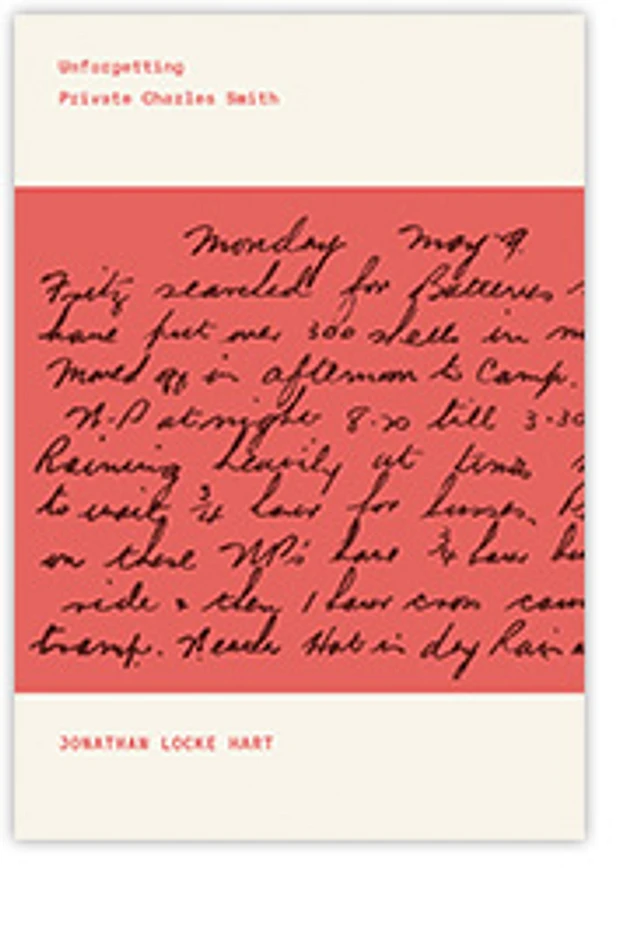 Unforgetting
Private Charles Smith
Monday May 9.
Fritz searched for Batteries
have put over 300 shells in
Moved off in afternoon to Camp.
N.P at night 8.20 till 3.30
Raining heavily at times
to wait 3/4 hour for busses.
on these NPs have 3/4 hour
side & then 1 hour cross
tramp. Hot in day Rain
JONATHAN LOCKE HART